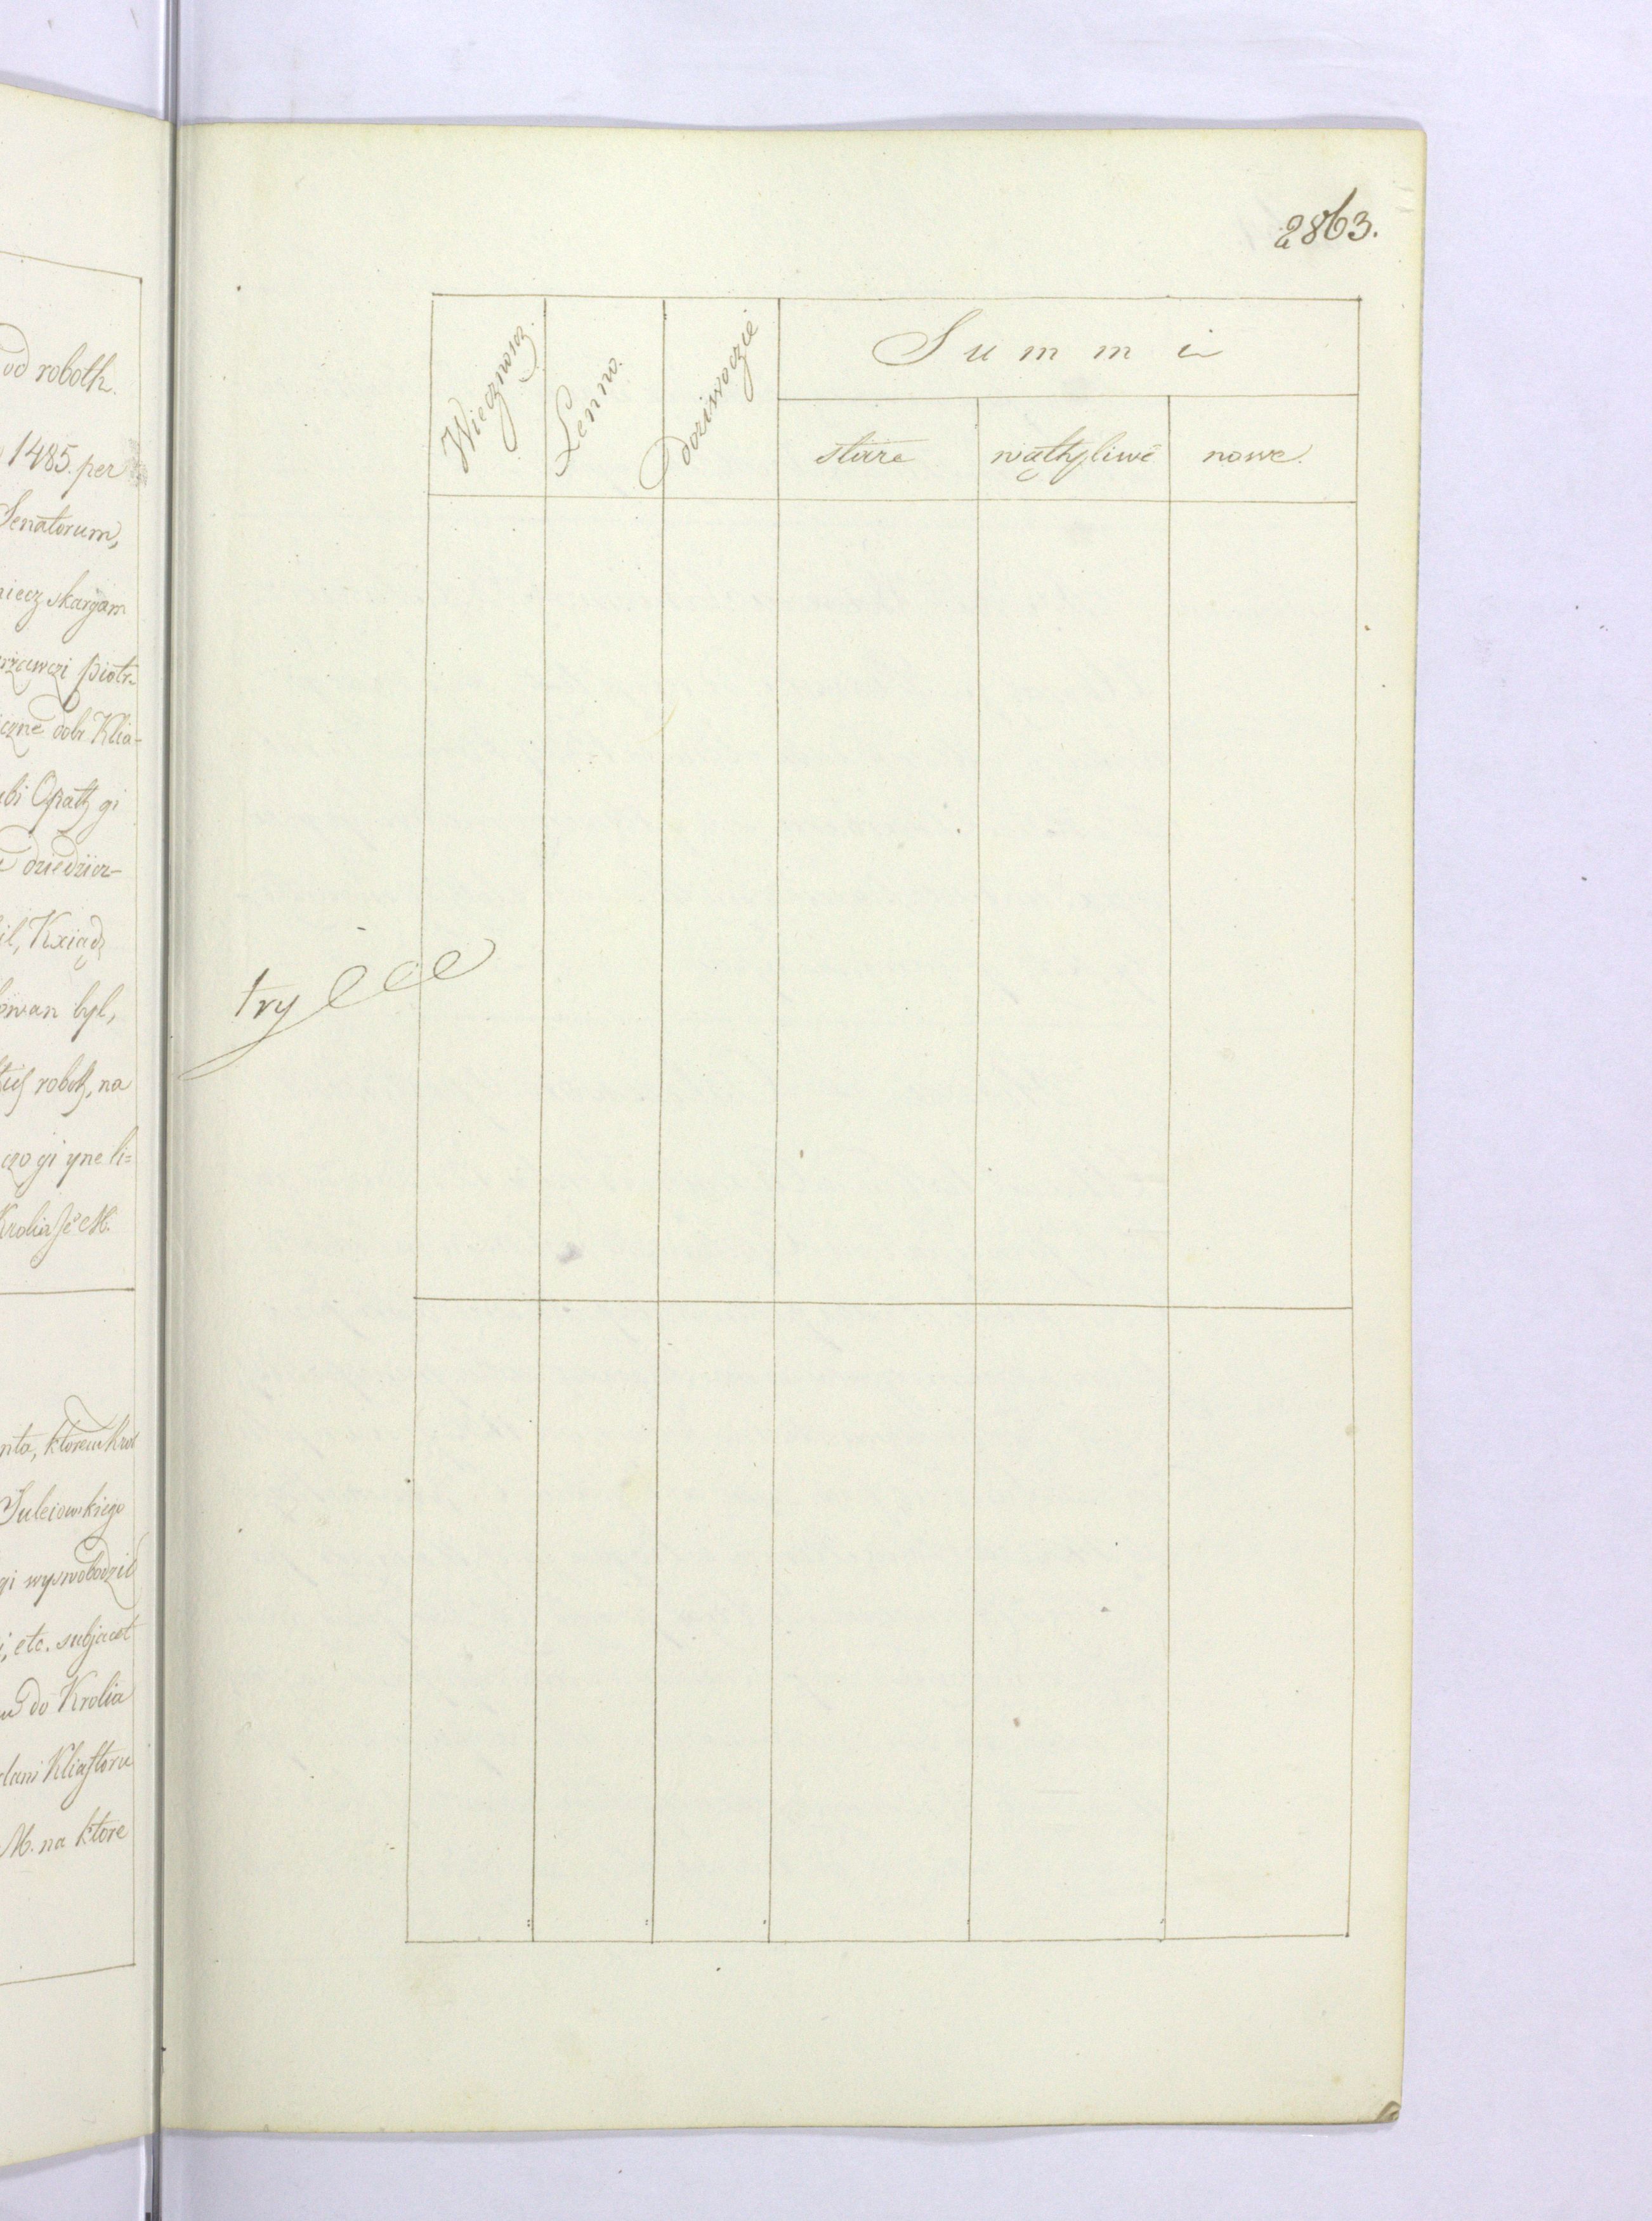 od roboth.
1485. per
Senatorum,
niecz skargam
rzawczi Piotr-
iczne dobr Klia-
bi Opath gi
dziedzicz-
il, Kxiądz
owan byl,
roboth, na
czo gi yne li=
Krolia Je M.
nta, ktorem Krol
Suleiowskiego
gi wyswobodzil
i, etc. subjacet
do Krolia
dani Kliasztoru
M. na ktore
2863.
Wiecznoscz. Lenno. Doziwoczie Summi
stare wąthpliwe nowe.